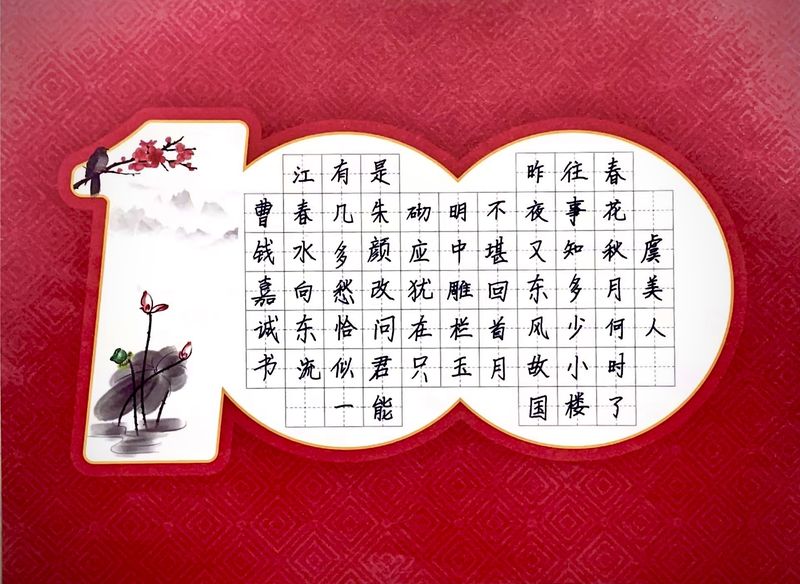 虞美人
春花秋月何时了
往事知多少小楼
昨夜又东风故国
不堪回首月
明中雕栏玉
砌应犹在只
是朱颜改问君能
有几多愁恰似一
江春水向东流
曹钱嘉诚书